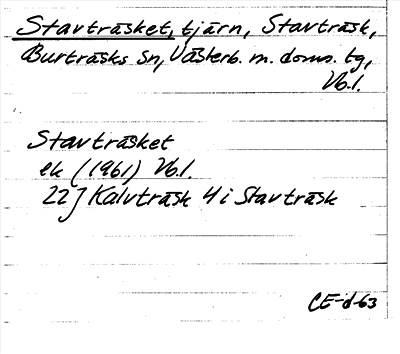 Stavträsket, tjärn, Stavträsk,
Burträsks sn, Västerb. m. doms. tg,
Vb.l.
Stavträsket
ek (1961) Vb.l.
22J Kalvträsk 4 i Stavträsk
CE-d-63